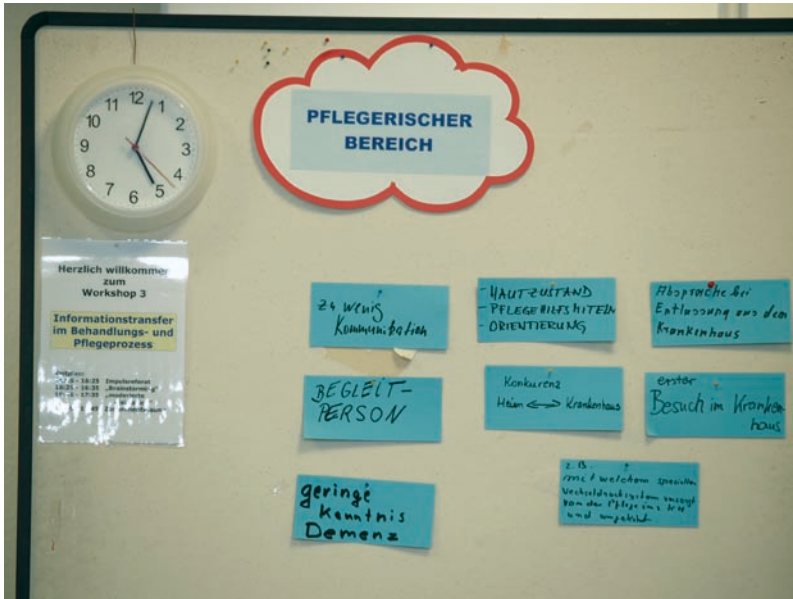 12
1
2
3
4
5
6
7
8
9
10
11
PFLEGERISCHER
BEREICH
Herzlich willkommen
zum
Workshop 3
Informationstransfer
im Behandlungs- und
Pflegeprozess
16:25 Impulsreferat
16:25 - 16:35 „Brainstorming"
17:35 „moderierte
zu wenig
Kommunikation
- HAUTZUSTAND
- PFLEGEHILFSMITELN
- ORIENTIERUNG
Absprache bei
Entlassung aus dem
Krankenhaus
BEGLEIT-
PERSON
Konkurenz
Heim <=> Krankenhaus
erster
Besuch im Kranken-
haus
geringe
Kenntnis
Demenz
z.B.
mit welchem speziellen
von der Pflege ins
und umgekehrt